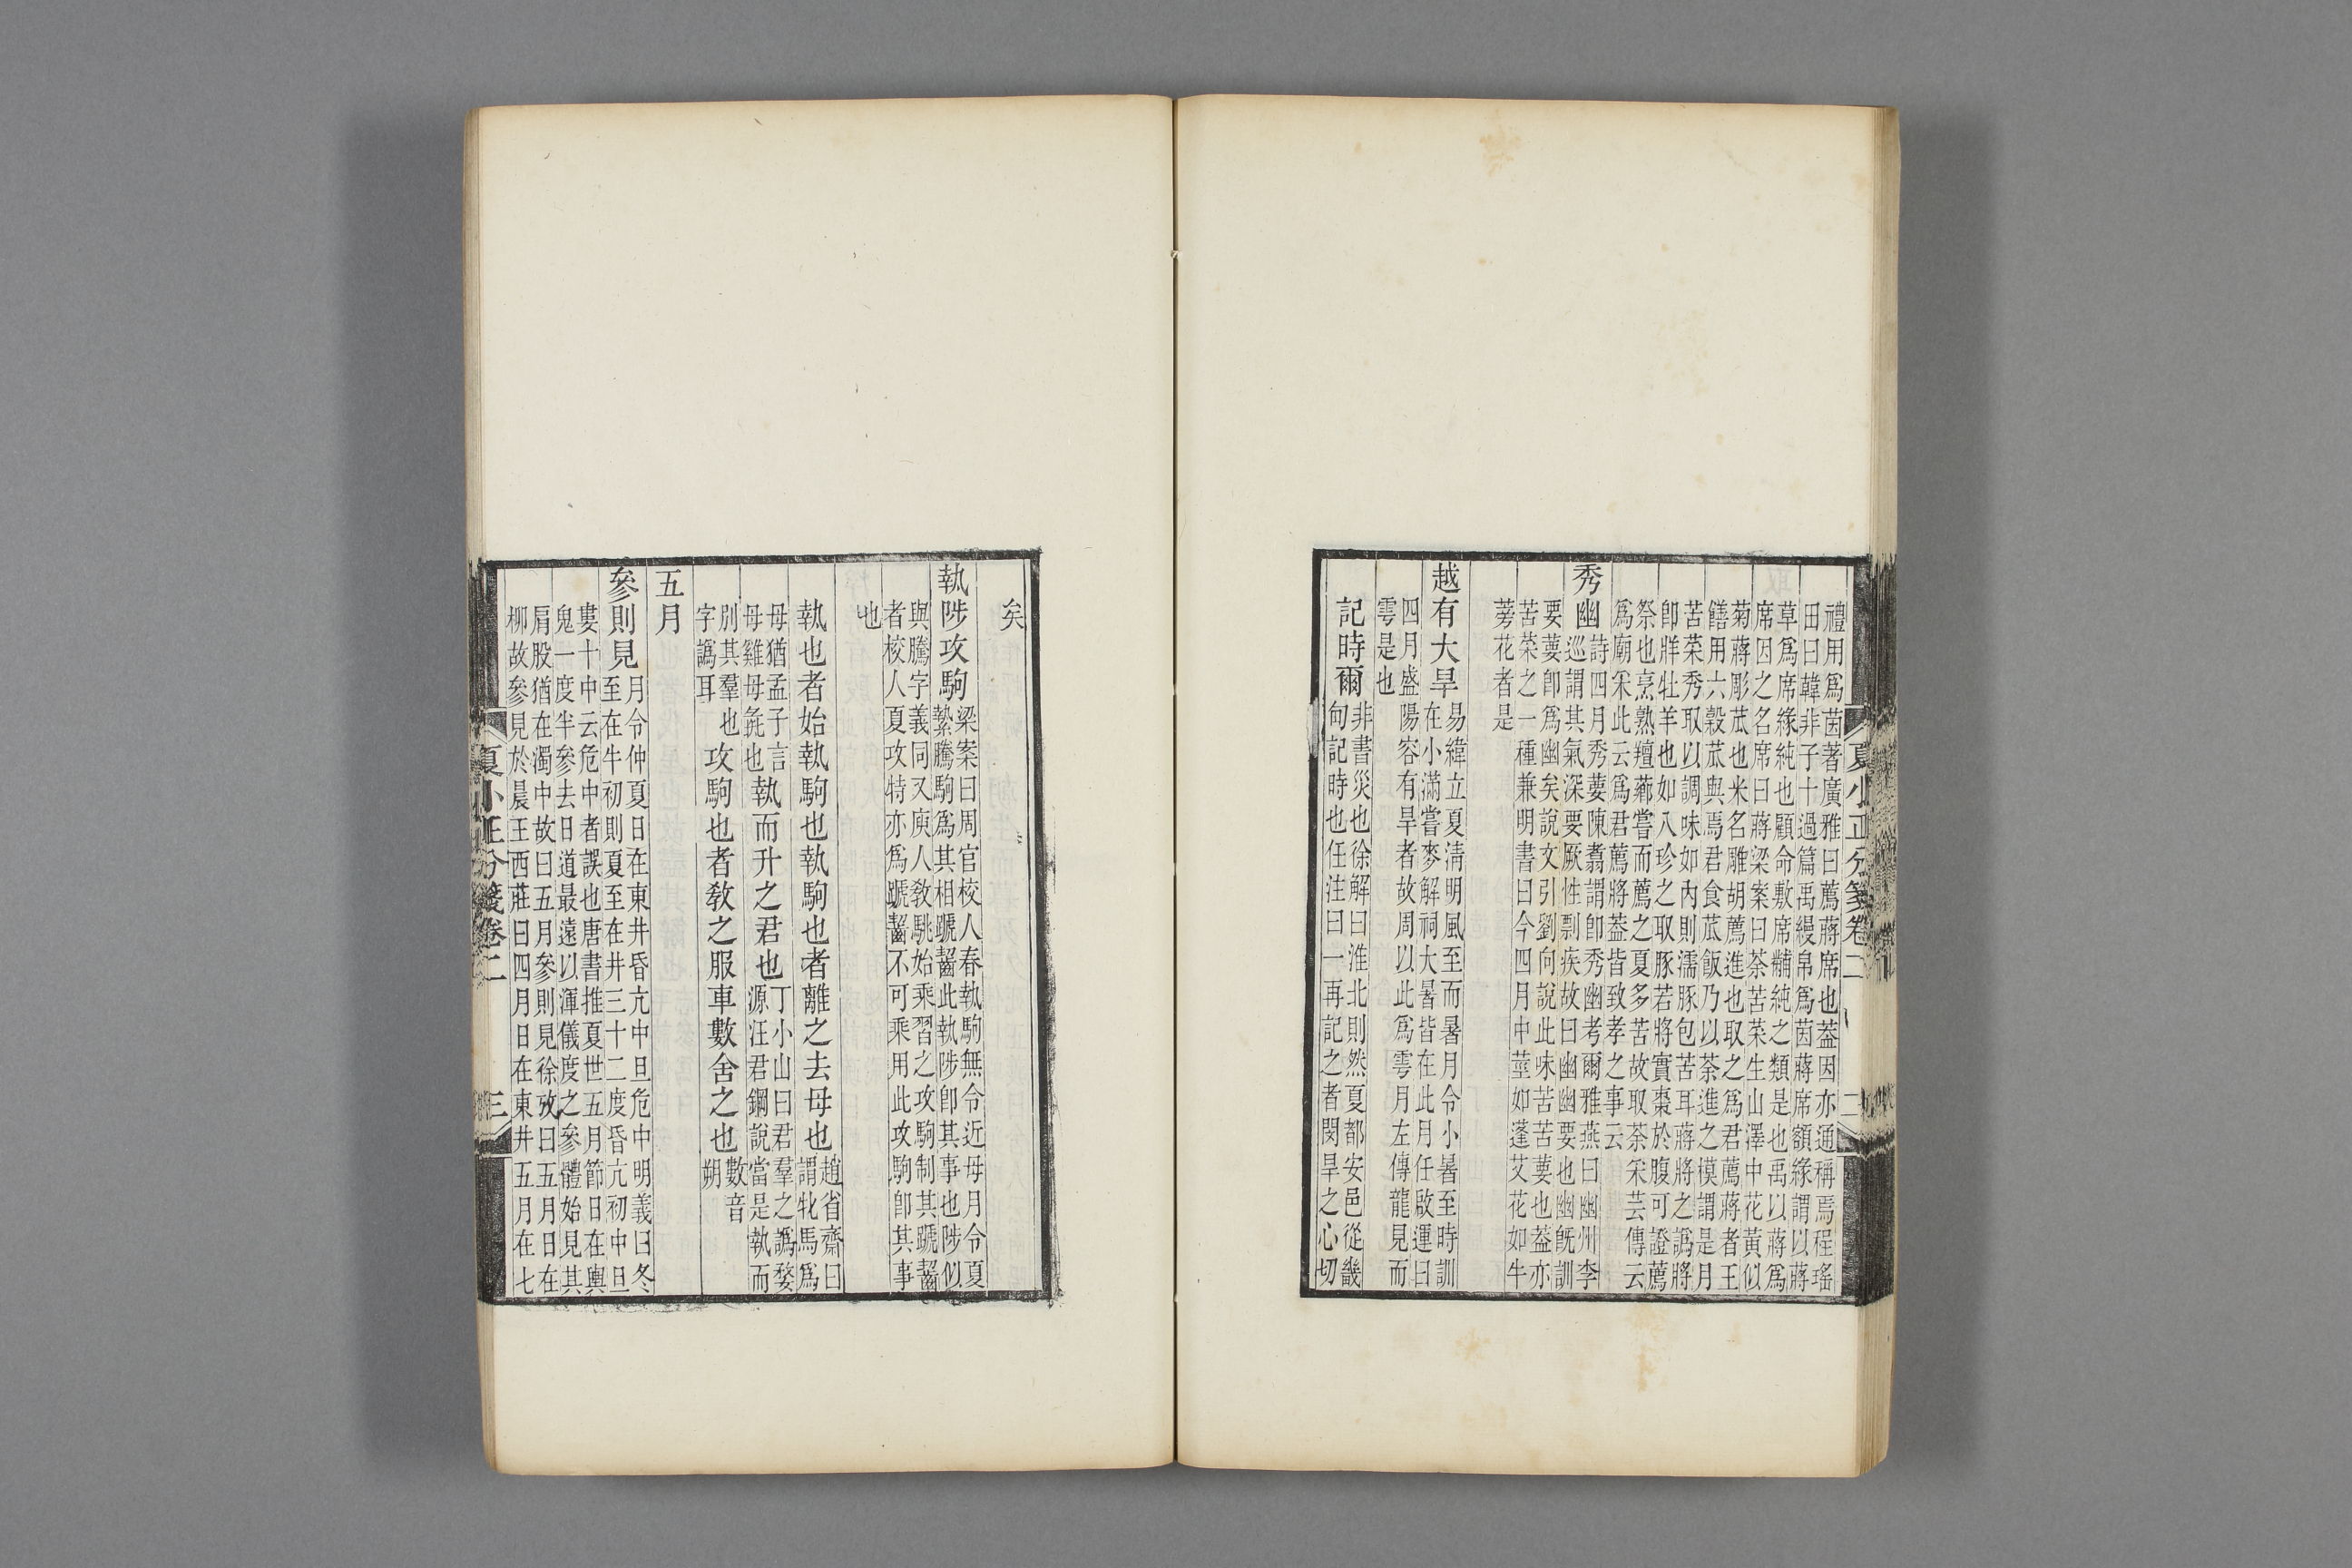 禮用爲茵著廣雅曰薦蔣席也葢因亦通稱焉程瑤
田曰韓非子十過篇禹縵帛爲茵蔣席額緣謂以蔣
草爲席緣純也顧命敷席黼純之類是也禹以蔣爲
席因之名席曰蔣梁案曰荼苦菜生山澤中花黃似
菊蔣彫苽也米名雕胡薦進也取之爲君薦蔣者王
饍用六穀苽與焉君食苽飯乃以荼進之模謂是月
苦菜秀取以調味如內則濡豚包苦耳蔣將之譌將
卽牂牡羊也如八珍之取豚若將實棗於腹可證薦
祭也烹熟羶薌嘗而薦之夏多苦故取荼采芸傳云
爲廟采此云爲君薦將葢皆致孝之事云
秀幽
詩四月秀葽陳翥謂卽秀幽考爾雅燕曰幽州李
巡謂其氣深要厥性剽疾故曰幽幽要也幽旣訓
要葽卽爲幽矣說文引劉向說此味苦苦葽也葢亦
苦菜之一種兼明書曰今四月中莖如蓬艾花如牛
蒡花者是
越有大旱
易緯立夏淸明風至而暑月令小暑至時訓
在小滿嘗麥解祠大暑皆在此月任啟運曰
四月盛陽容有旱者故周以此爲雩月左傳龍見而
雩是也
記時爾
非書災也徐解曰淮北則然夏都安邑從畿
句記時也任注曰一再記之者閔旱之心切
夏小正分箋卷二
二
矣
執陟攻駒
梁案曰周官校人春執駒無令近母月令夏
縶騰駒爲其相蹏齧此執陟卽其事也陟似
與騰字義同又庾人敎駣始乘習之攻駒制其蹏齧
者校人夏攻特亦爲蹏齧不可乘用此攻駒卽其事
也
執也者始執駒也執駒也者離之去母也
趙省齋曰
謂牝馬爲
母猶孟子言
母雞母彘也
執而升之君也
丁小山曰君羣之譌婺
源汪君鋼說當是執而
別其羣也
字譌耳
攻駒也者敎之服車數舍之也
數音
朔
五月
參則見
月令仲夏日在東井昏亢中旦危中明義曰冬
至在牛初則夏至在井三十二度昏亢初中旦
婁十中云危中者誤也唐書推夏世五月節日在輿
鬼一度半參去日道最遠以渾儀度之參體始見其
肩股猶在濁中故曰五月參則見徐攷曰五月日在
柳故參見於晨王西莊曰四月日在東井五月在七
夏小正分箋卷二
三